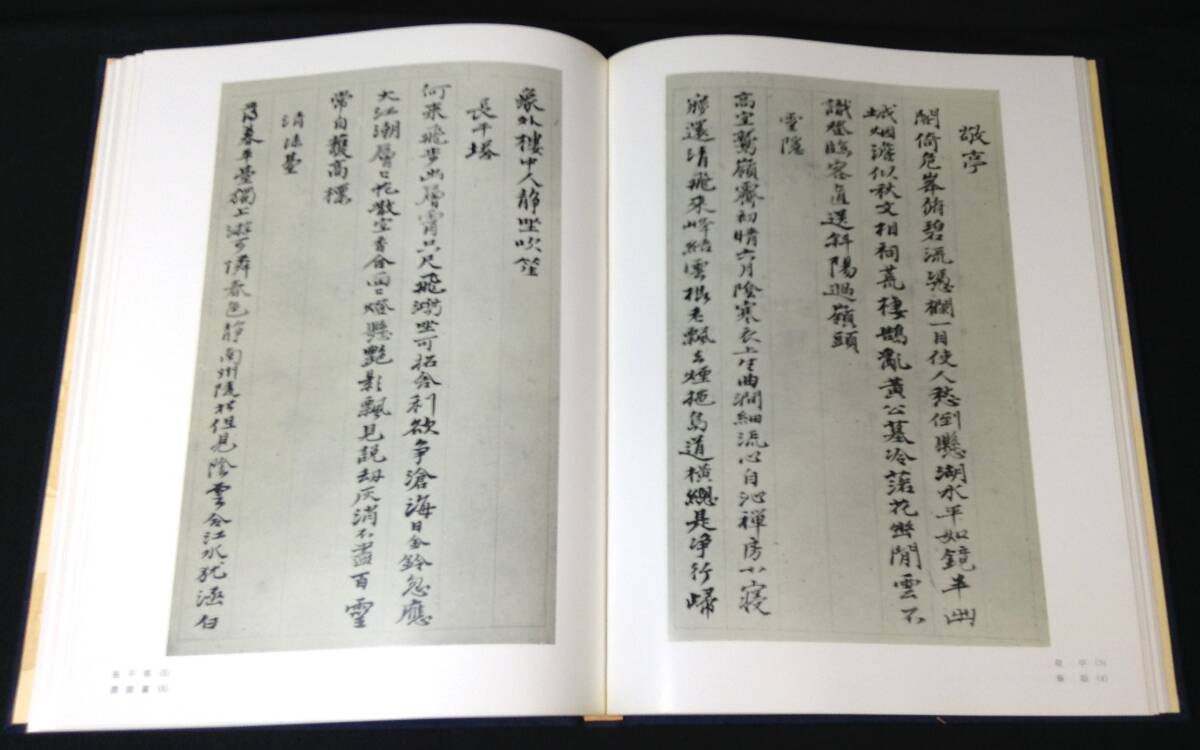 敬亭
閣倚危峯俯碧流憑欄一目使人愁倒懸湖水平如鏡半出
城烟澹似秋文相祠荒棲鵲亂黃公墓冷落花幽閒雲不
識登臨客直送斜陽過嶺頭
靈隱
高空鷲嶺霽初晴六月陰寒衣上生曲澗細流心自沁禪房小寢
寤還清飛來峰結雲根老飄去煙拖鳥道橫總是净行歸
象外樓中人靜坐吹笙
長干塔
何來飛步出層霄只尺飛濤坐可招舍利欲爭滄海日金鈴忽應
大江潮層口花散空香合面口燈懸艷影飄見說劫灰消不盡百靈
常自護高標
清涼臺
薄暮平臺獨上游可憐春色靜南州陵松但見陰雲合江水猶涵白
敬 亭 (3)
靈 隱 (4)
長 干 塔 (5)
清 涼 臺 (6)